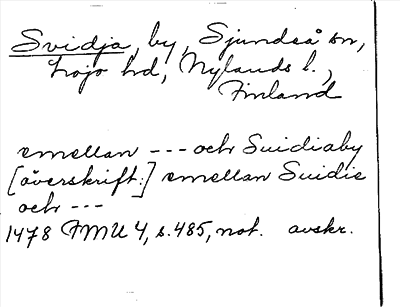 Svidja, by, Sjundeå sn,
Lojo hd, Nylands l.,
Finland
emellan --- och Suidiaby
[överskrift:] emellan Suidie
och ---
1478 FMU 4, s. 485, not. avskr.